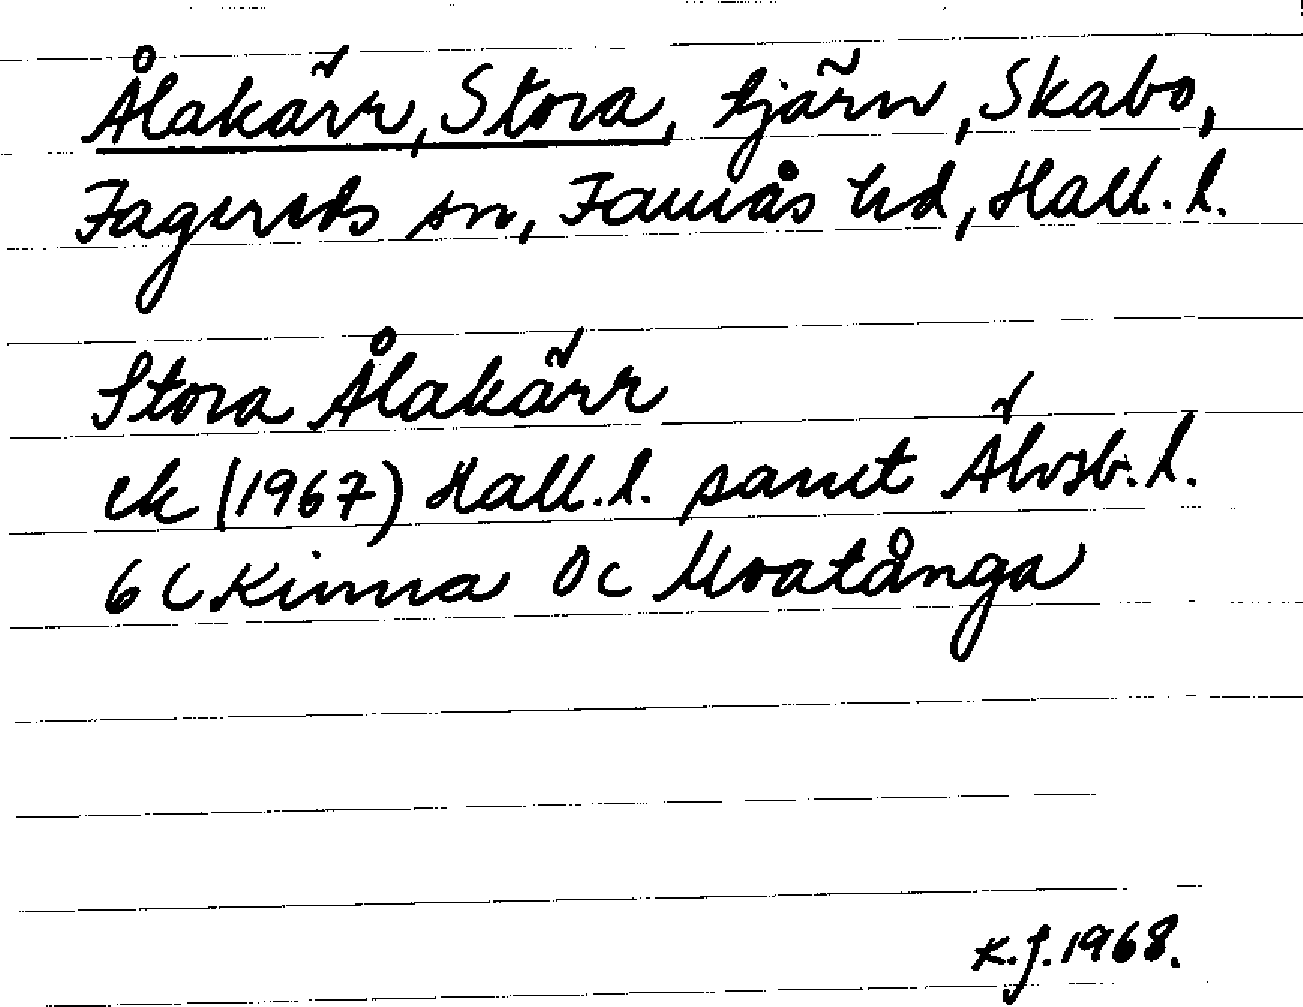 Ålakärr, Stora, tjärn, Skabo,
Fagereds sn, Faurås hd, Hall. l.
Stora Ålakärr
ek (1967) Hall. l. samt Älvsb. l.
6 C Kinna 0 c Mvatånga
K.J. 1968.